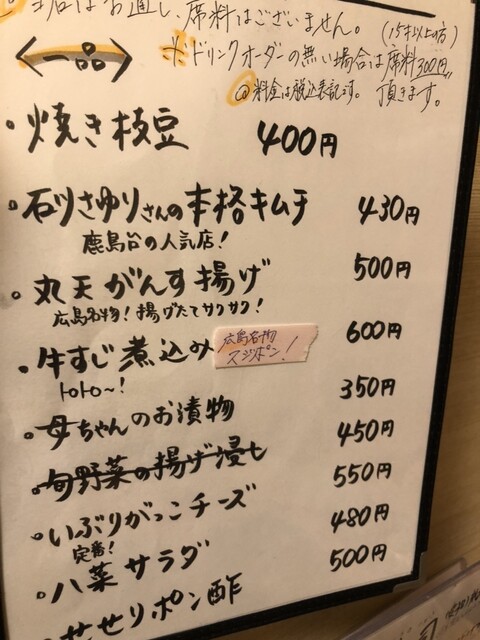 当店はお通し、席料はございません。
(15才以上の方)
※ドリンクオーダーの無い場合は席料300円
頂きます。
◎料金は税込表記です。
一品
・焼き枝豆 400円
・石川さゆりさんの本格キムチ 430円
鹿島台の人気店!
・丸天がんす揚げ 500円
広島名物!揚げたてサクサク!
・牛すじ煮込み 600円
広島名物
スジポン!
トロトロ〜!
・母ちゃんのお漬物 350円
・旬野菜の揚げ浸し 450円
・いぶりがっこチーズ 550円
定番!
・八菜サラダ 480円
せりポン酢 500円